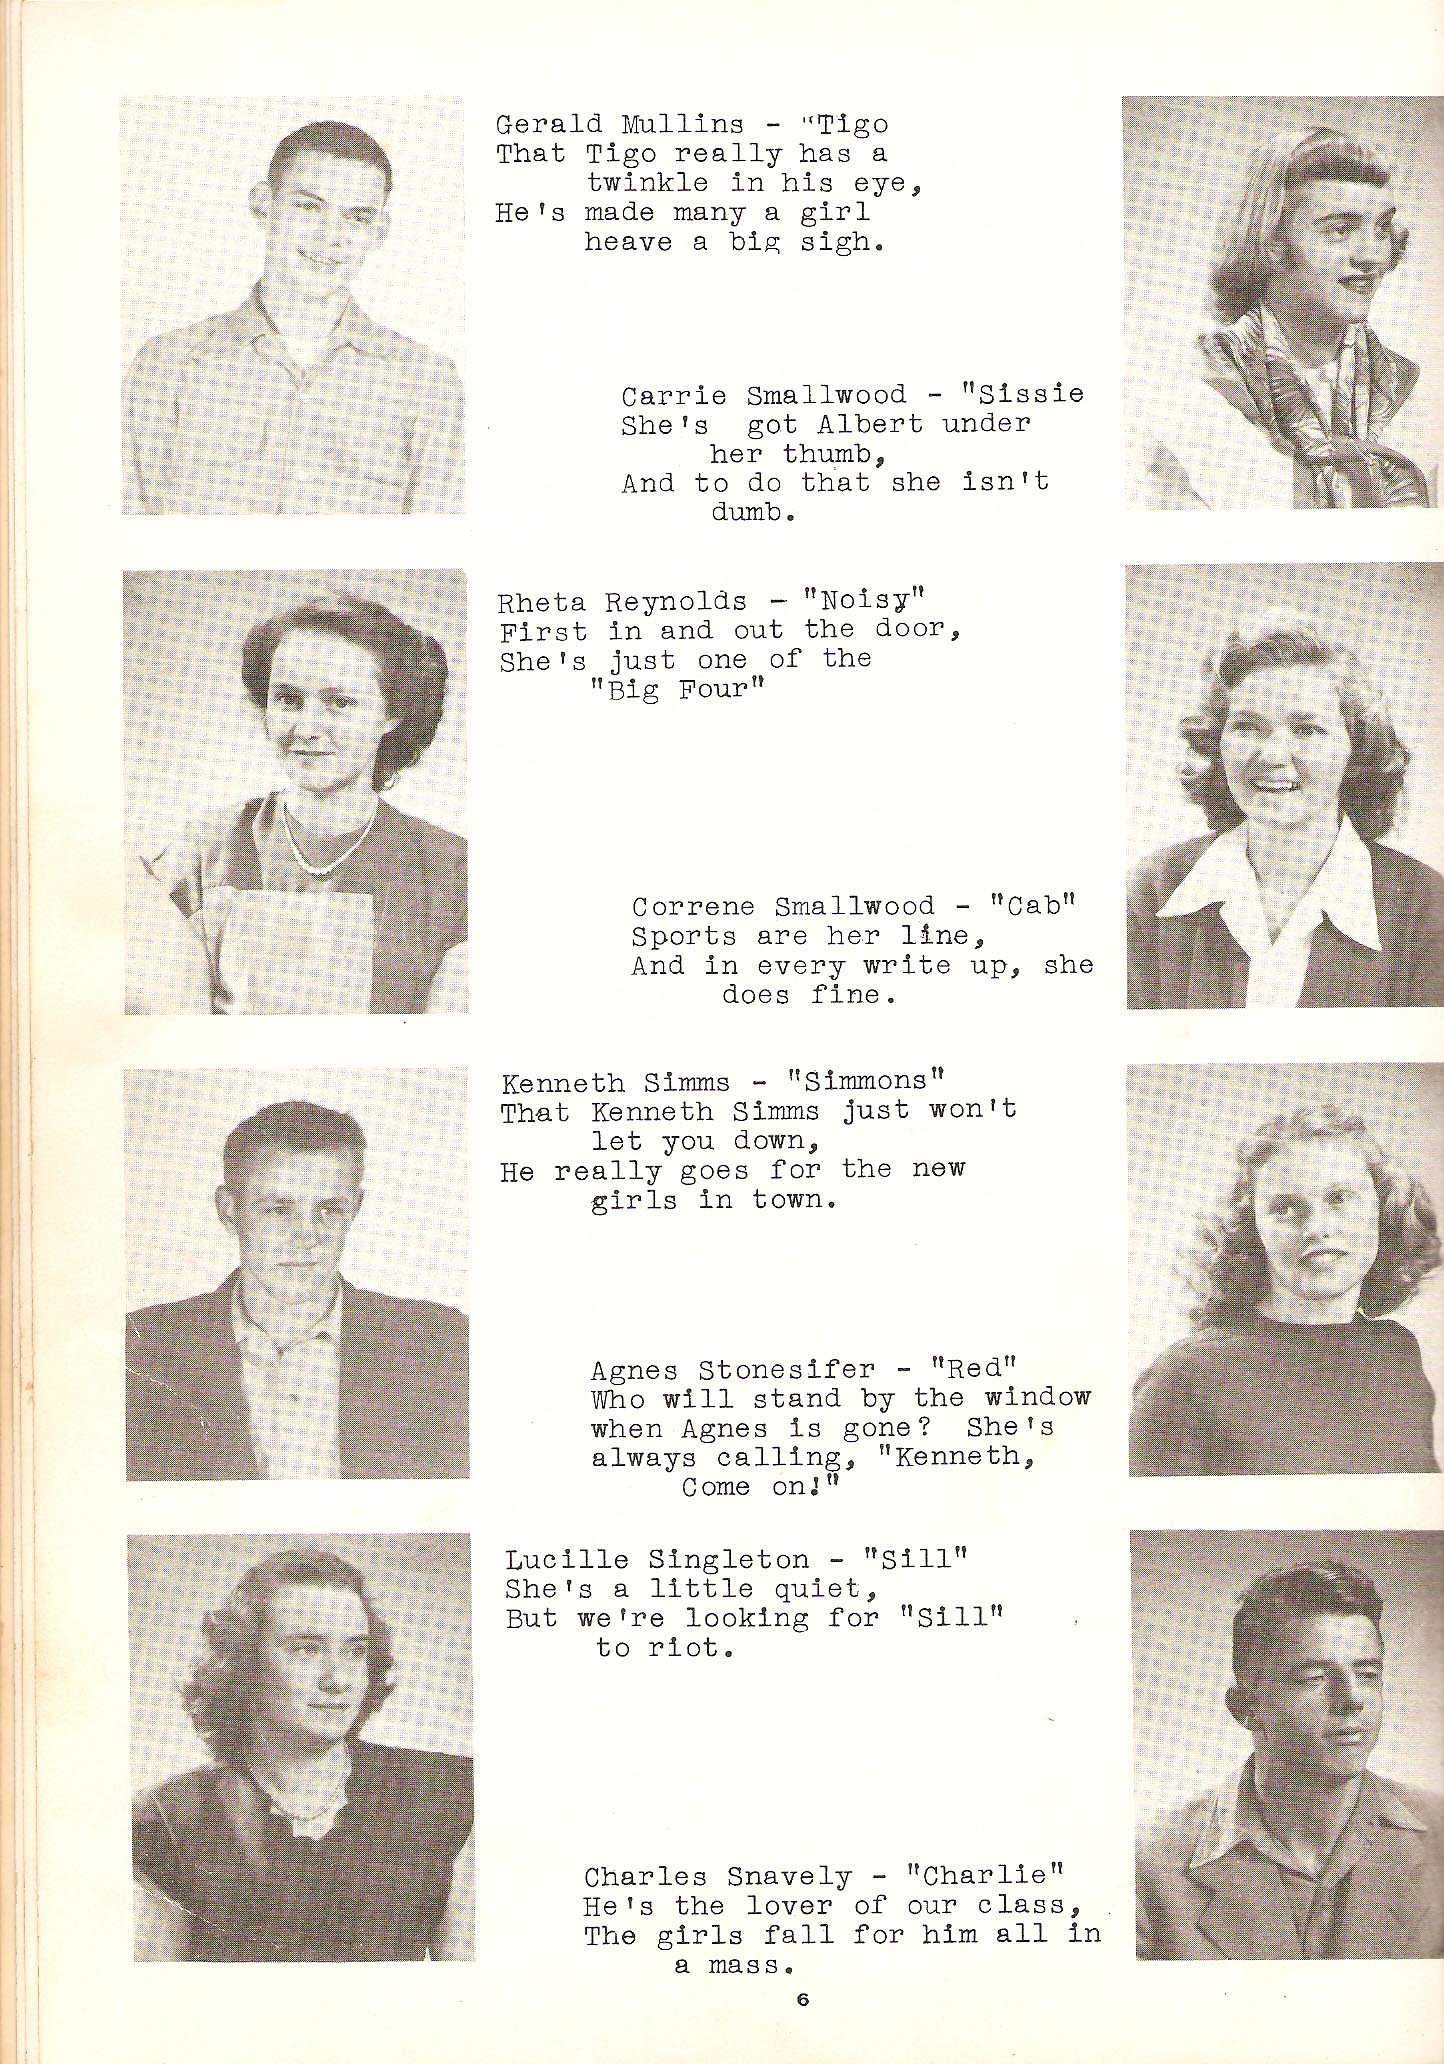 Gerald Mullins - "Tigo
That Tigo really has a
twinkle in his eye,
He's made many a girl
heave a big sigh.
Carrie Smallwood - "Sissie
She's got Albert under
her thumb,
And to do that she isn't
dumb.
Rheta Reynolds - "Noisy"
First in and out the door,
She's just one of the
"Big Four"
Correne Smallwood - "Cab"
Sports are her line,
And in every write up, she
does fine.
Kenneth Simms - "Simmons"
That Kenneth Simms just won't
let you down,
He really goes for the new
girls in town.
Agnes Stonesifer - "Red"
Who will stand by the window
when Agnes is gone? She's
always calling, "Kenneth,
Come on!"
Lucille Singleton - "Sill"
She's a little quiet,
But we're looking for "Sill"
to riot.
Charles Snavely - "Charlie"
He's the lover of our class,
The girls fall for him all in
a mass.
6